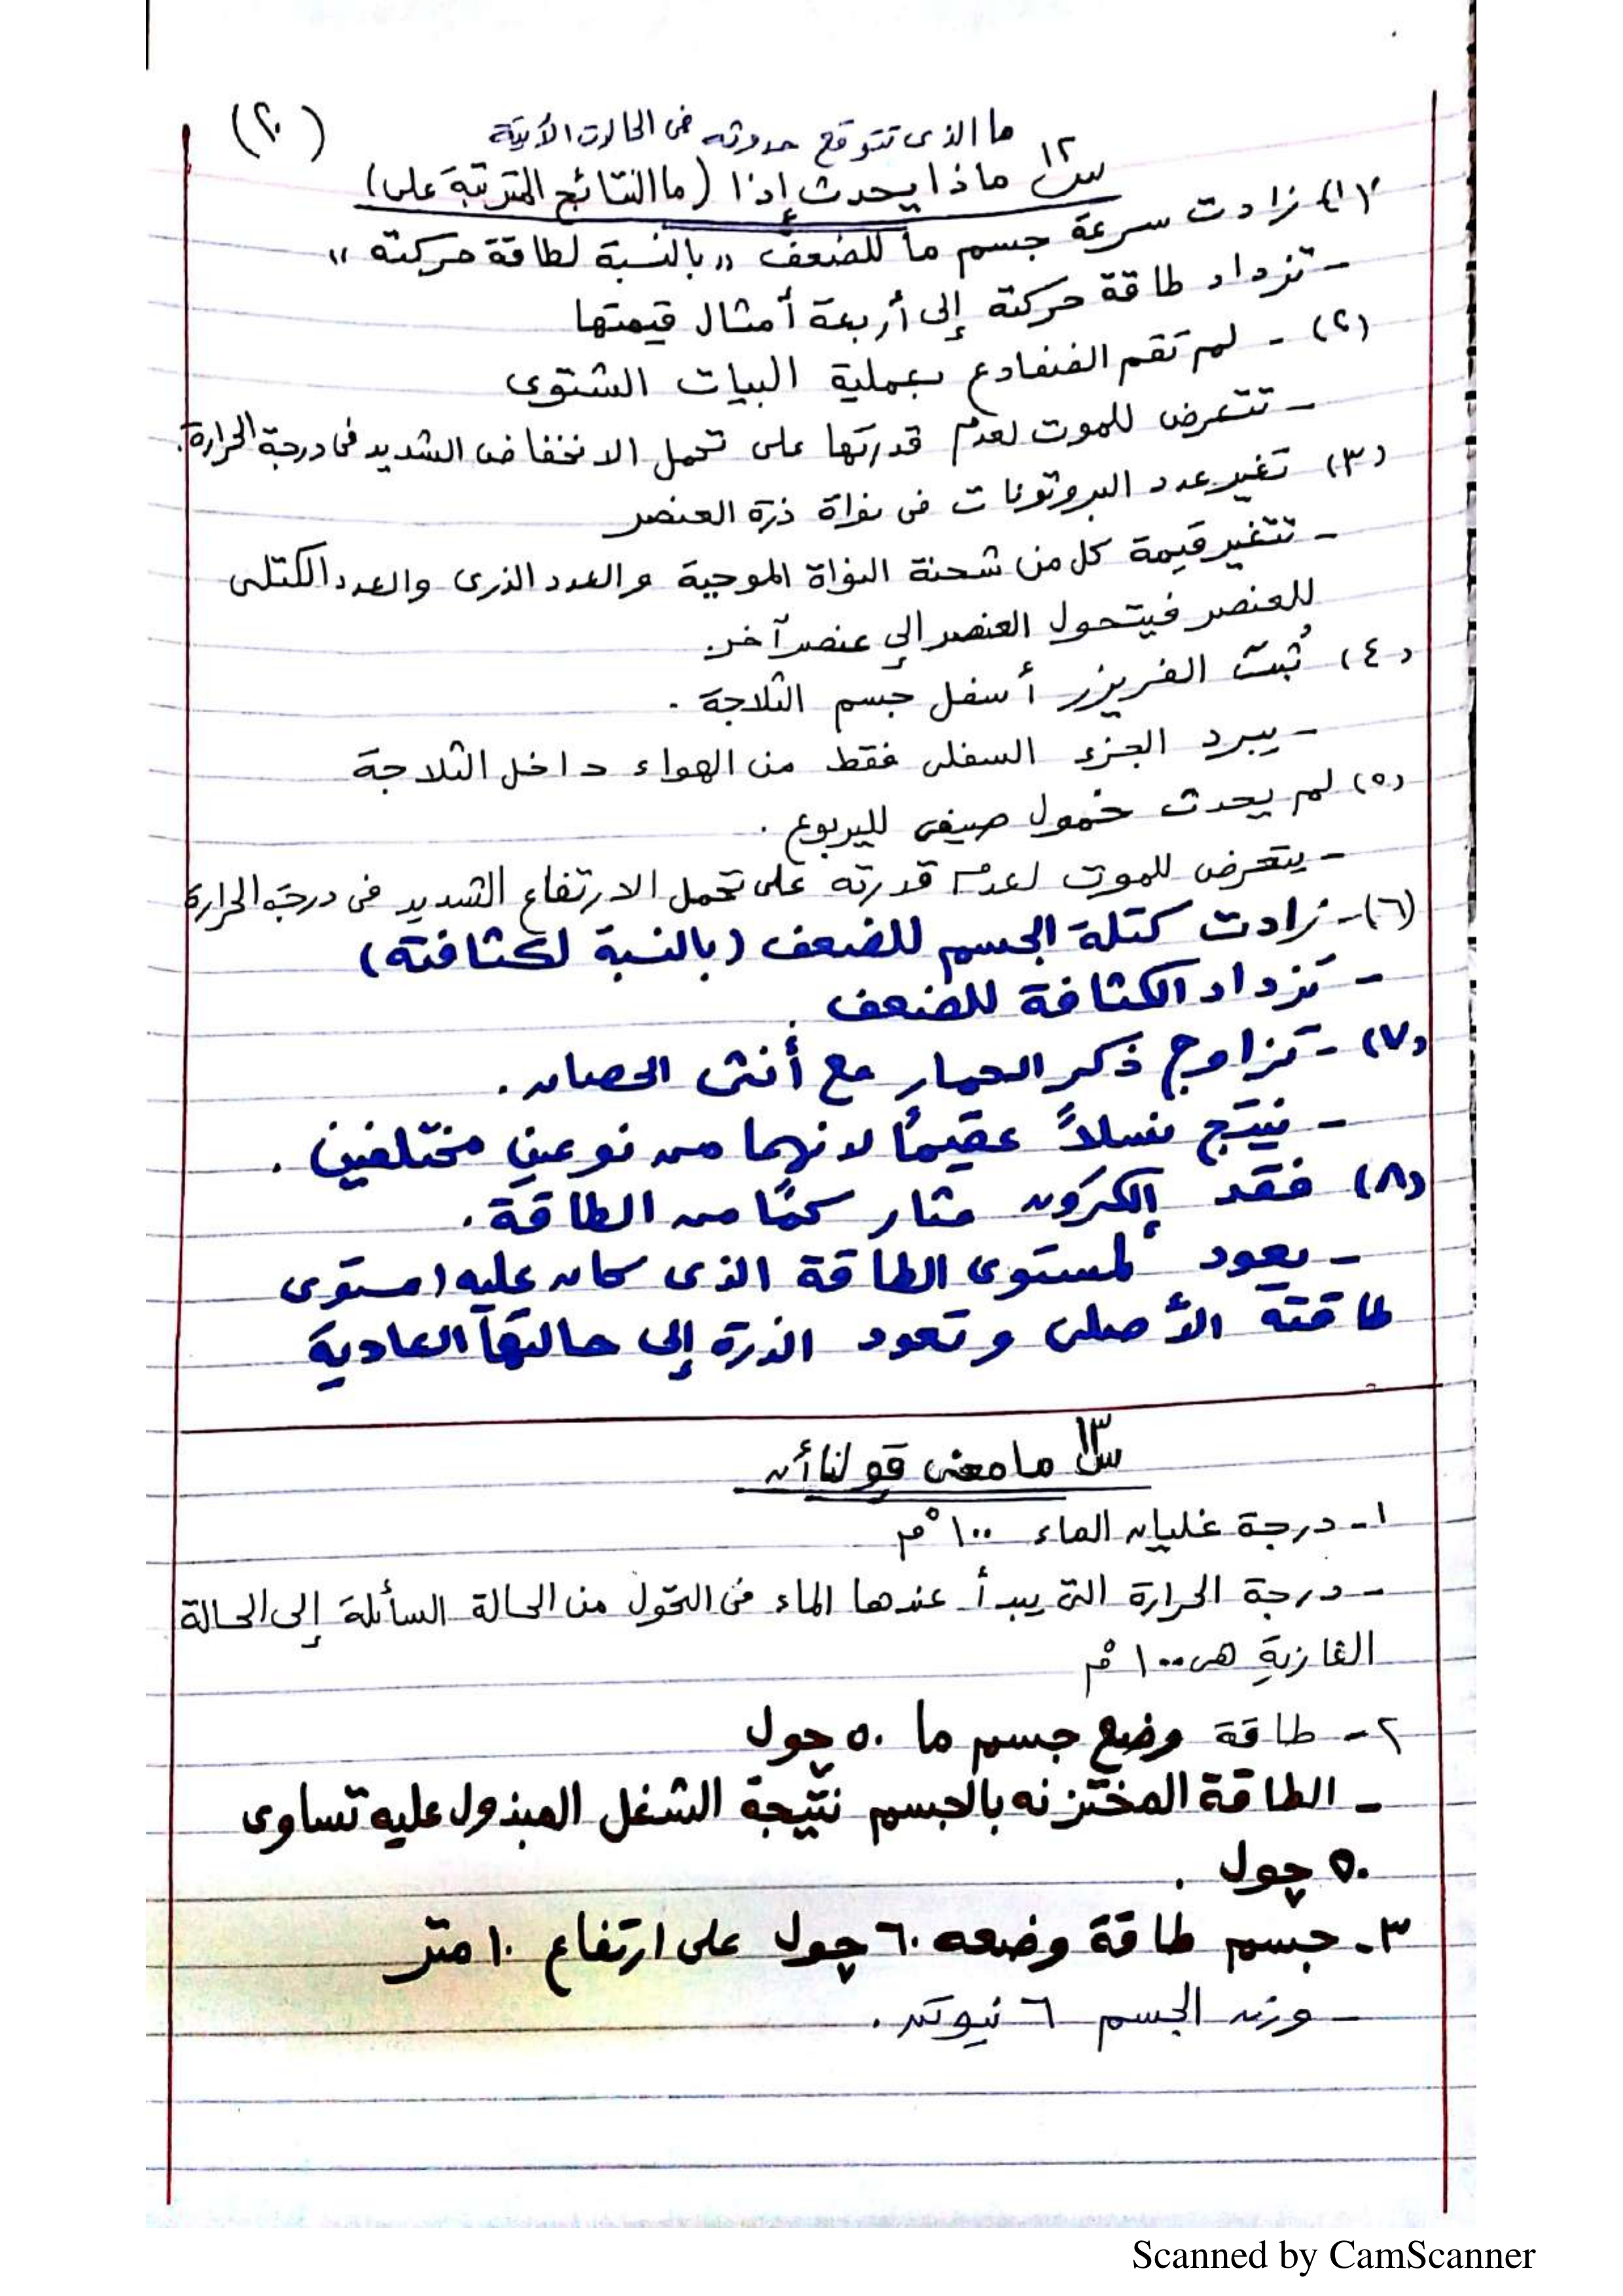 (٢٠)
ما الذى تتوقع حدوثه فى الحالات الآتية
س١٢ ماذا يحدث إذا (ما النتائج المترتبة على)
(١) زادت سرعة جسم ما للضعف "بالنسبة لطاقة حركته"
- تزداد طاقة حركته إلى أربعة أمثال قيمتها
(٢) - لم تقم الضفادع بعملية البيات الشتوى
- تتعرض للموت لعدم قدرتها على تحمل الانخفاض الشديد فى درجة الحرارة.
(٣) تغير عدد البروتونات فى نواة ذرة العنصر
- تتغير قيمة كل من شحنة النواة الموجبة والعدد الذرى والعدد الكتلى
للعنصر فيتحول العنصر إلى عنصر آخر.
(٤) ثُبت الفريزر أسفل جسم الثلاجة.
- يبرد الجزء السفلى فقط من الهواء داخل الثلاجة
(٥) لم يحدث خمول صيفى لليربوع.
- يتعرض للموت لعدم قدرته على تحمل الارتفاع الشديد فى درجة الحرارة
(٦) - زادت كتلة الجسم للضعف (بالنسبة لكثافته)
- تزداد الكثافة للضعف.
(٧) - تزاوج ذكر الحمار مع أنثى الحصان.
- ينتج نسلاً عقيمًا لانهما من نوعين مختلفين.
(٨) فقد إلكترون مثار كمًا من الطاقة.
- يعود لمستوى الطاقة الذى كان عليه (مستوى
طاقته الأصلى وتعود الذرة إلى حالتها العادية
س١٣ ما معنى قولنا أن
١- درجة غليان الماء ١٠٠°م
- درجة الحرارة التى يبدأ عندها الماء فى التحول من الحالة السائلة إلى الحالة
الغازية هى ١٠٠°م
٢- طاقة وضع جسم ما ٥٠ چول
- الطاقة المختزنه بالجسم نتيجة الشغل المبذول عليه تساوى
٥٠ چول.
٣- جسم طاقة وضعه ٦٠ چول على ارتفاع ١٠ متر
- وزن الجسم ٦ نيوتن.
Scanned by CamScanner